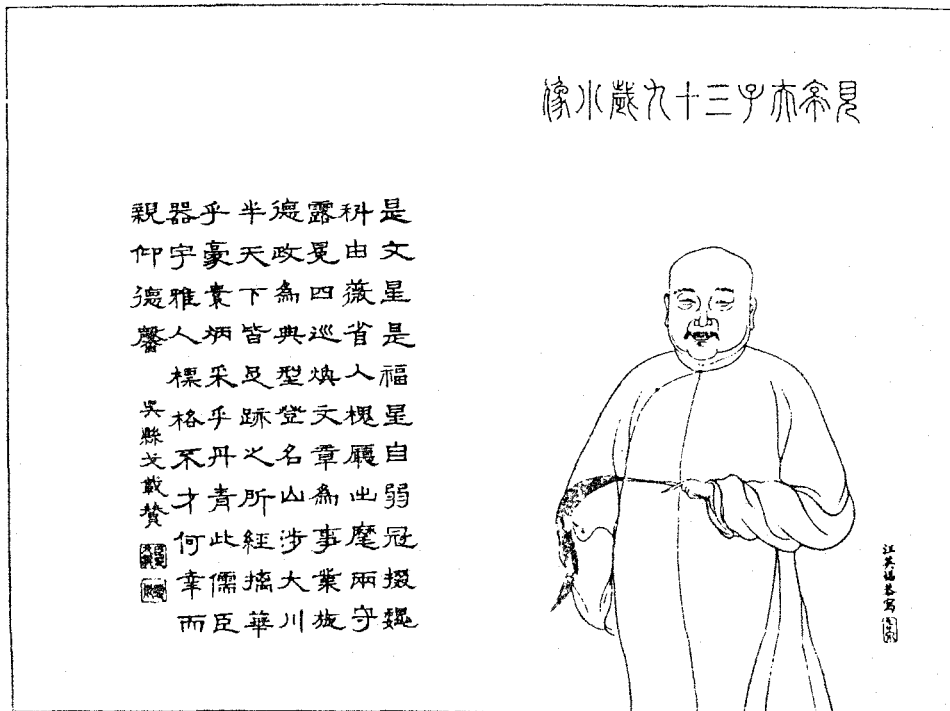 見亭夫子三十九歲小像
是文星是福星自弱冠掇巍
科由薇省入槐廳出麾兩守
露冕四巡煥文章為事業施
德政為典型登名山涉大川
半天下皆足跡之所經摛華
乎豪素炳采乎丹青此儒臣
器宇雅人標格不才何幸而
親仰德馨
吳縣戈載贊
汪英福恭寫